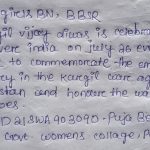 girls BN, BBSR
vijay diwas, is celebra
over india on july 26 eve
to commemorate the em
ry in the kargil ware aga
stan and honour the wa
oes.
D21SWA903090 - Puja Be
Govt. womens collage, P